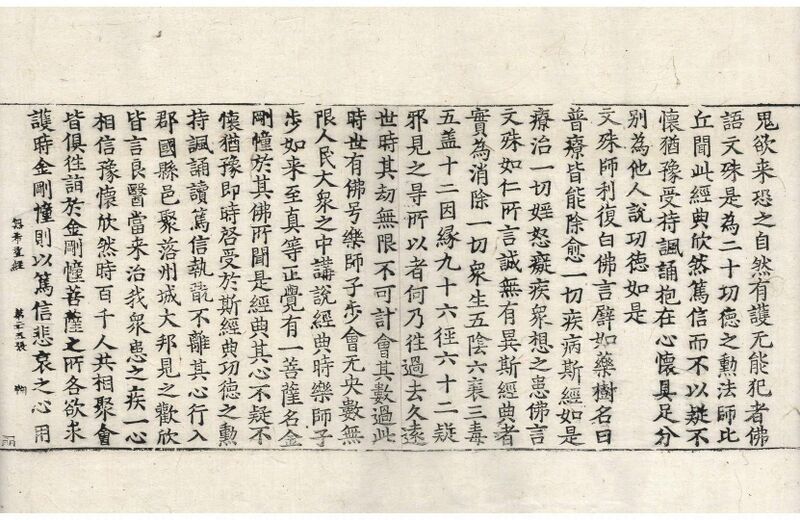 鬼欲来恐之自然有護无能犯者佛
語文殊是為二十功徳之勲法師比
丘聞此經典欣然篤信而不以疑不
懷猶豫受持諷誦抱在心懷具足分
別為他人說功徳如是
文殊師利復白佛言譬如藥樹名曰
普療皆能除愈一切疾病斯經如是
療治一切婬怒癡疾衆想之患佛言
文殊如仁所言誠無有異斯經典者
實為消除一切衆生五陰六衰三毒
五盖十二因縁九十六徑六十二疑
邪見之㝵所以者何乃往過去久遠
世時其劫無限不可計會其數過此
時世有佛号樂師子步會无央數無
限人民大衆之中講說經典時樂師子
步如来至真等正覺有一菩薩名金
剛幢於其佛所聞是經典其心不疑不
懷猶豫即時啓受於斯經典功徳之勲
持諷誦讀篤信執翫不離其心行入
郡國縣邑聚落州城大邦見之歡欣
皆言良醫當来治我衆患之疾一心
相信豫懷欣然時百千人共相聚會
皆俱往詣於金剛幢菩薩之所各欲求
護時金剛幢則以篤信悲哀之心用